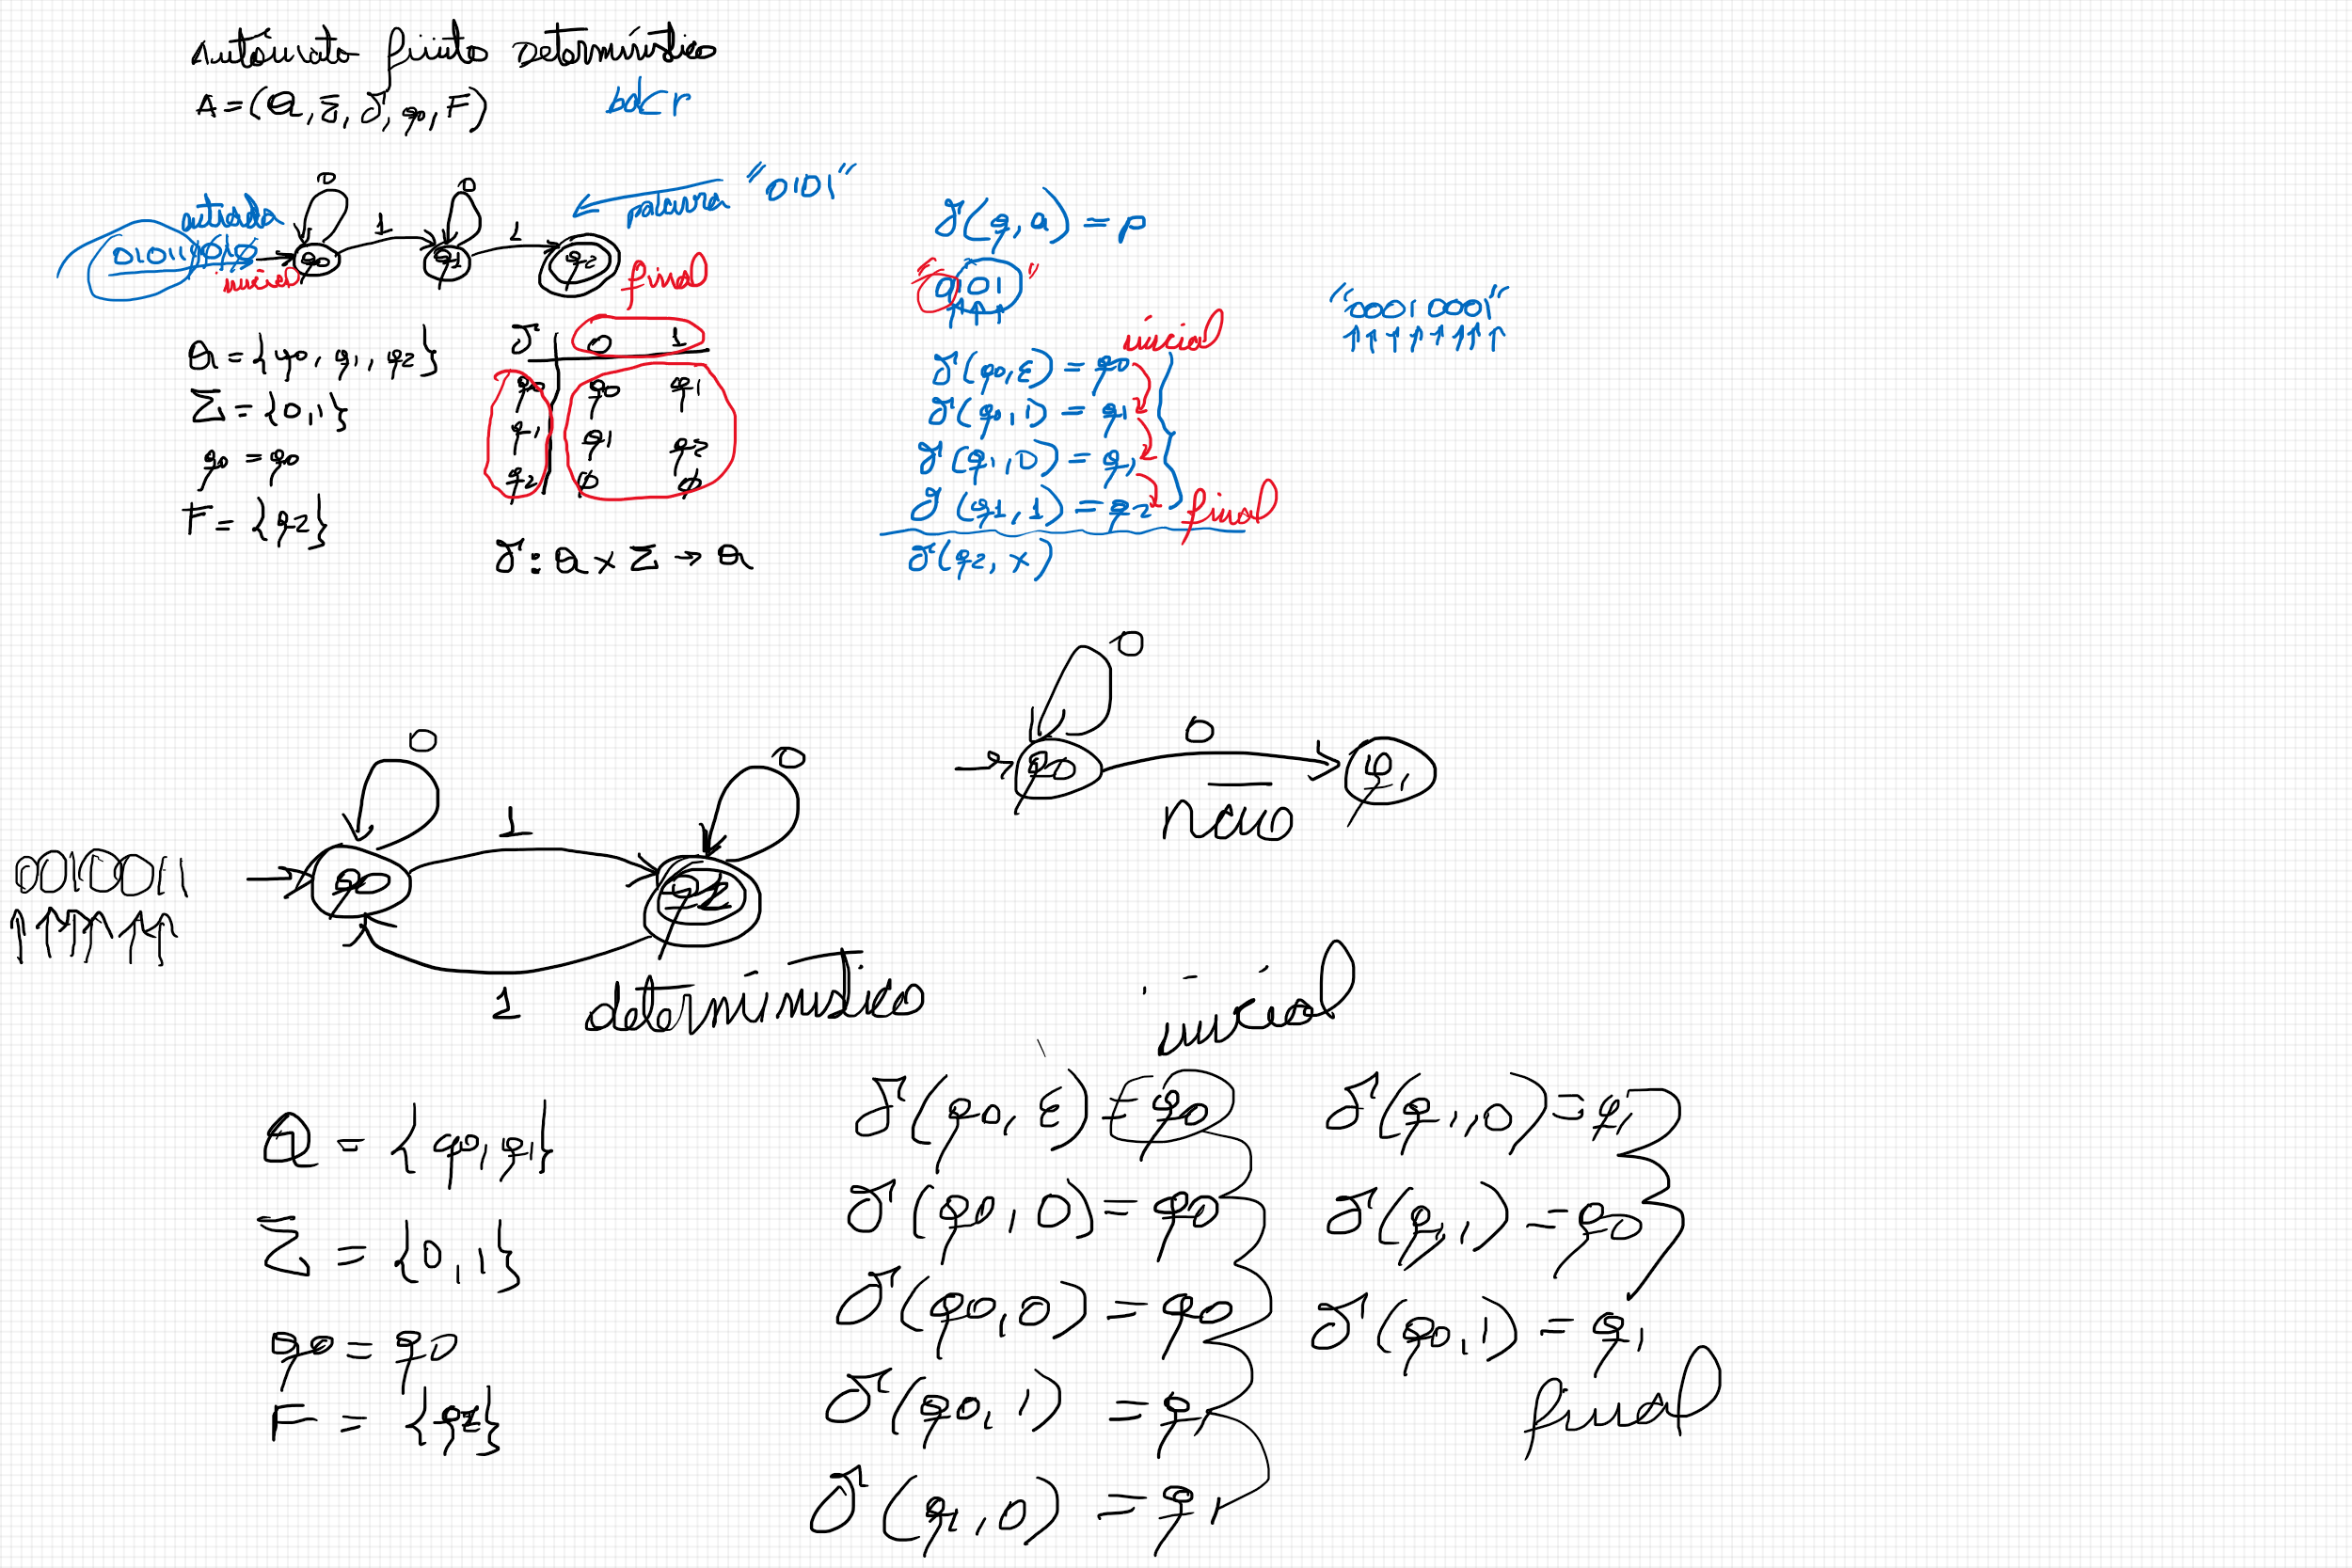 Autômato finito Determinístico
A = (Q, Σ, δ, q0, F)
0 0
1 1
q0 q1 q2
entrada
inicial
final
palavra "0101"
Q = {q0, q1, q2}
Σ = {0,1}
q0 = q0
F = {q2}
δ 0 1
q0 q0 q1
q1 q1 q2
q2 ∅ ∅
δ: Q x Σ → Q
δ(q, a) = p
"0101"
inicial
δ(q0, ε) = q0
δ(q0, 1) = q1
δ(q1, 0) = q1
δ(q1, 1) = q2
final
δ(q2, x)
"00010001"
0
0
q0 q1
não
0 0
1
0010011
q0
1
determinístico
Q = {q0, q1}
Σ = {0,1}
q0 = q0
F = {q1}
inicial
δ(q0, ε) = q0
δ(q0, 0) = q0
δ(q0, 0) = q0
δ(q0, 1) = q1
δ(q1, 0) = q1
δ(q1, 0) = q1
δ(q1, 1) = q0
δ(q0, 1) = q1
final